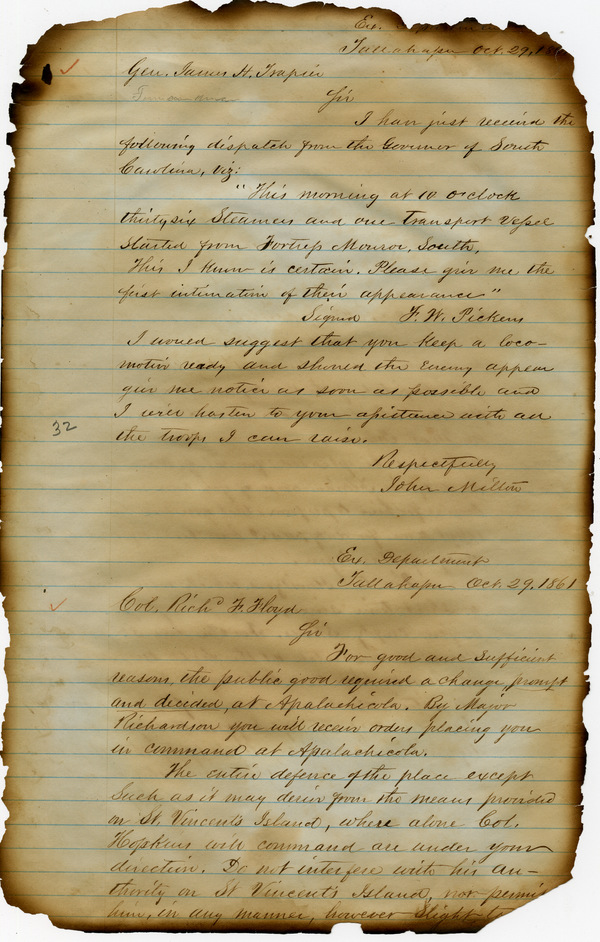 Ex. Department
Tallahassee Oct. 29, 186
Gen. James H. Trapier
Sir
I have just received the
following dispatch from the Governor of South
Carolina, viz:
"This morning at 10 o'clock
thirty six Steamers and one Transport Vessel
started from Fortress Monroe, South.
This I know is certain. Please give me the
first intimation of their appearance"
Signed F. W. Pickens
I would suggest that you keep a loco-
motive ready and should the Enemy appear
give me notice as soon as possible and
I will hasten to your assistance with all
the troops I can raise.
32
Respectfully
John Milton
Ex. Department
Tallahassee Oct. 29, 1861
Col. Richd F. Floyd
Sir
For good and sufficient
reasons, the public good required a change, prompt
and decided, at Apalachicola. By Major
Richardson you will receive orders placing you
in command at Apalachicola.
The entire defence of the place except
such as it may derive from the means provided
on St. Vincent's Island, where alone Col.
Hopkins will command are under your
direction. Do not interfere with his au-
thority on St Vincent's Island, nor permit
him, in any manner, however slight to